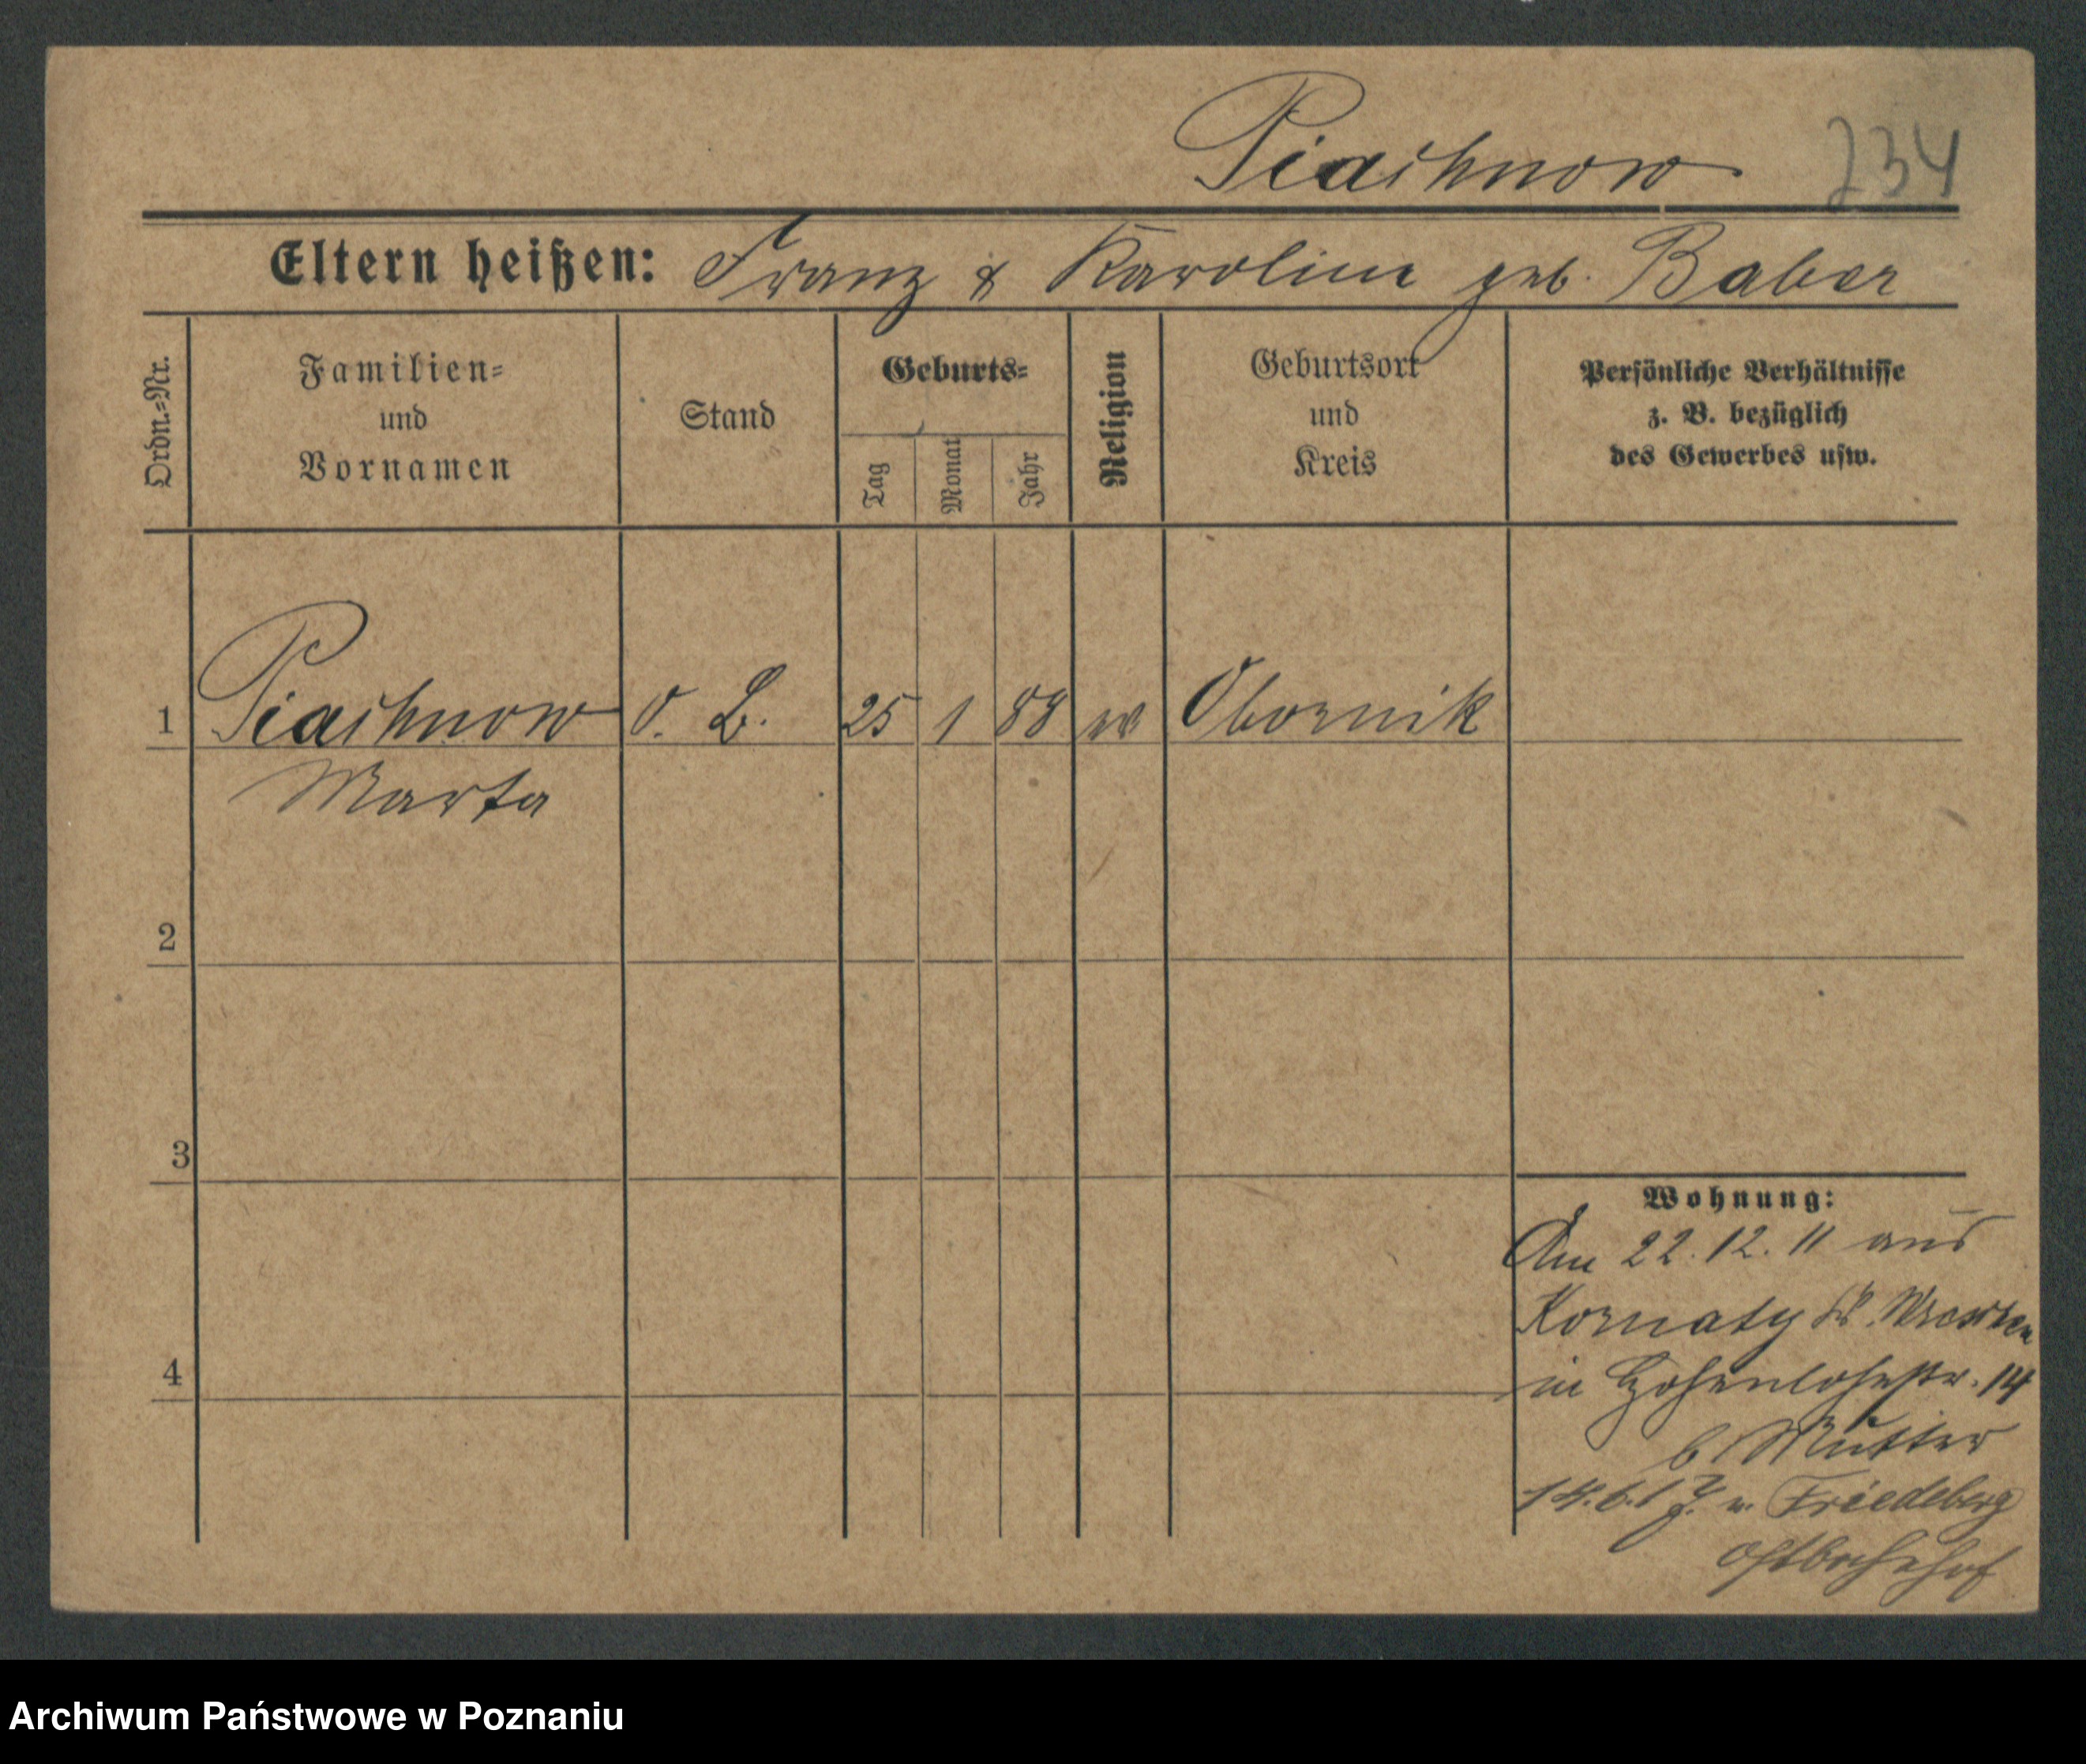 Piaschnow 234
Eltern heißen: Franz & Karoline geb. Baber
Ordn.=Nr.
Familien=
und
Vornamen
Stand
Geburts=
Tag
Monat
Jahr
Religion
Geburtsort
und
Kreis
Persönliche Verhältnisse
z. B. bezüglich
des Gewerbes usw.
1 Piaschnow o. B. 25 1 88 ev Obornik
Marta
2
3
4
Wohnung:
Am 22.12.11 aus
Kornaty Kr. Wreschen
in Hohenlohestr. 14
b Mutter
14.6.17. n. Friedeberg
Ostbahnhof
Archiwum Państwowe w Poznaniu